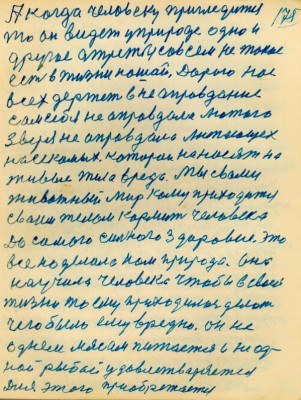 178
А когда человеку приглядится
то он видет уприроде одно и
другое а третье совсем не такое
есть в жизни нашей. Дарно нас
всех держет в не оправдание
сам себя не оправдала лютого
Зверя не оправдала лютающех
насекомых, которои наносят на
живые тила вреда. Мы с вами
животный Мир кому приходится
своим телом кормить человека
До самого силного Здоровие. Это
все поделала нам природа. она
научила человека чтобы в своей
жизни то ему приходилося делать
чего было ему вредно. он не
одним мясам питается и не од-
ной рыбой удовлетваряется
Для этого приобретается